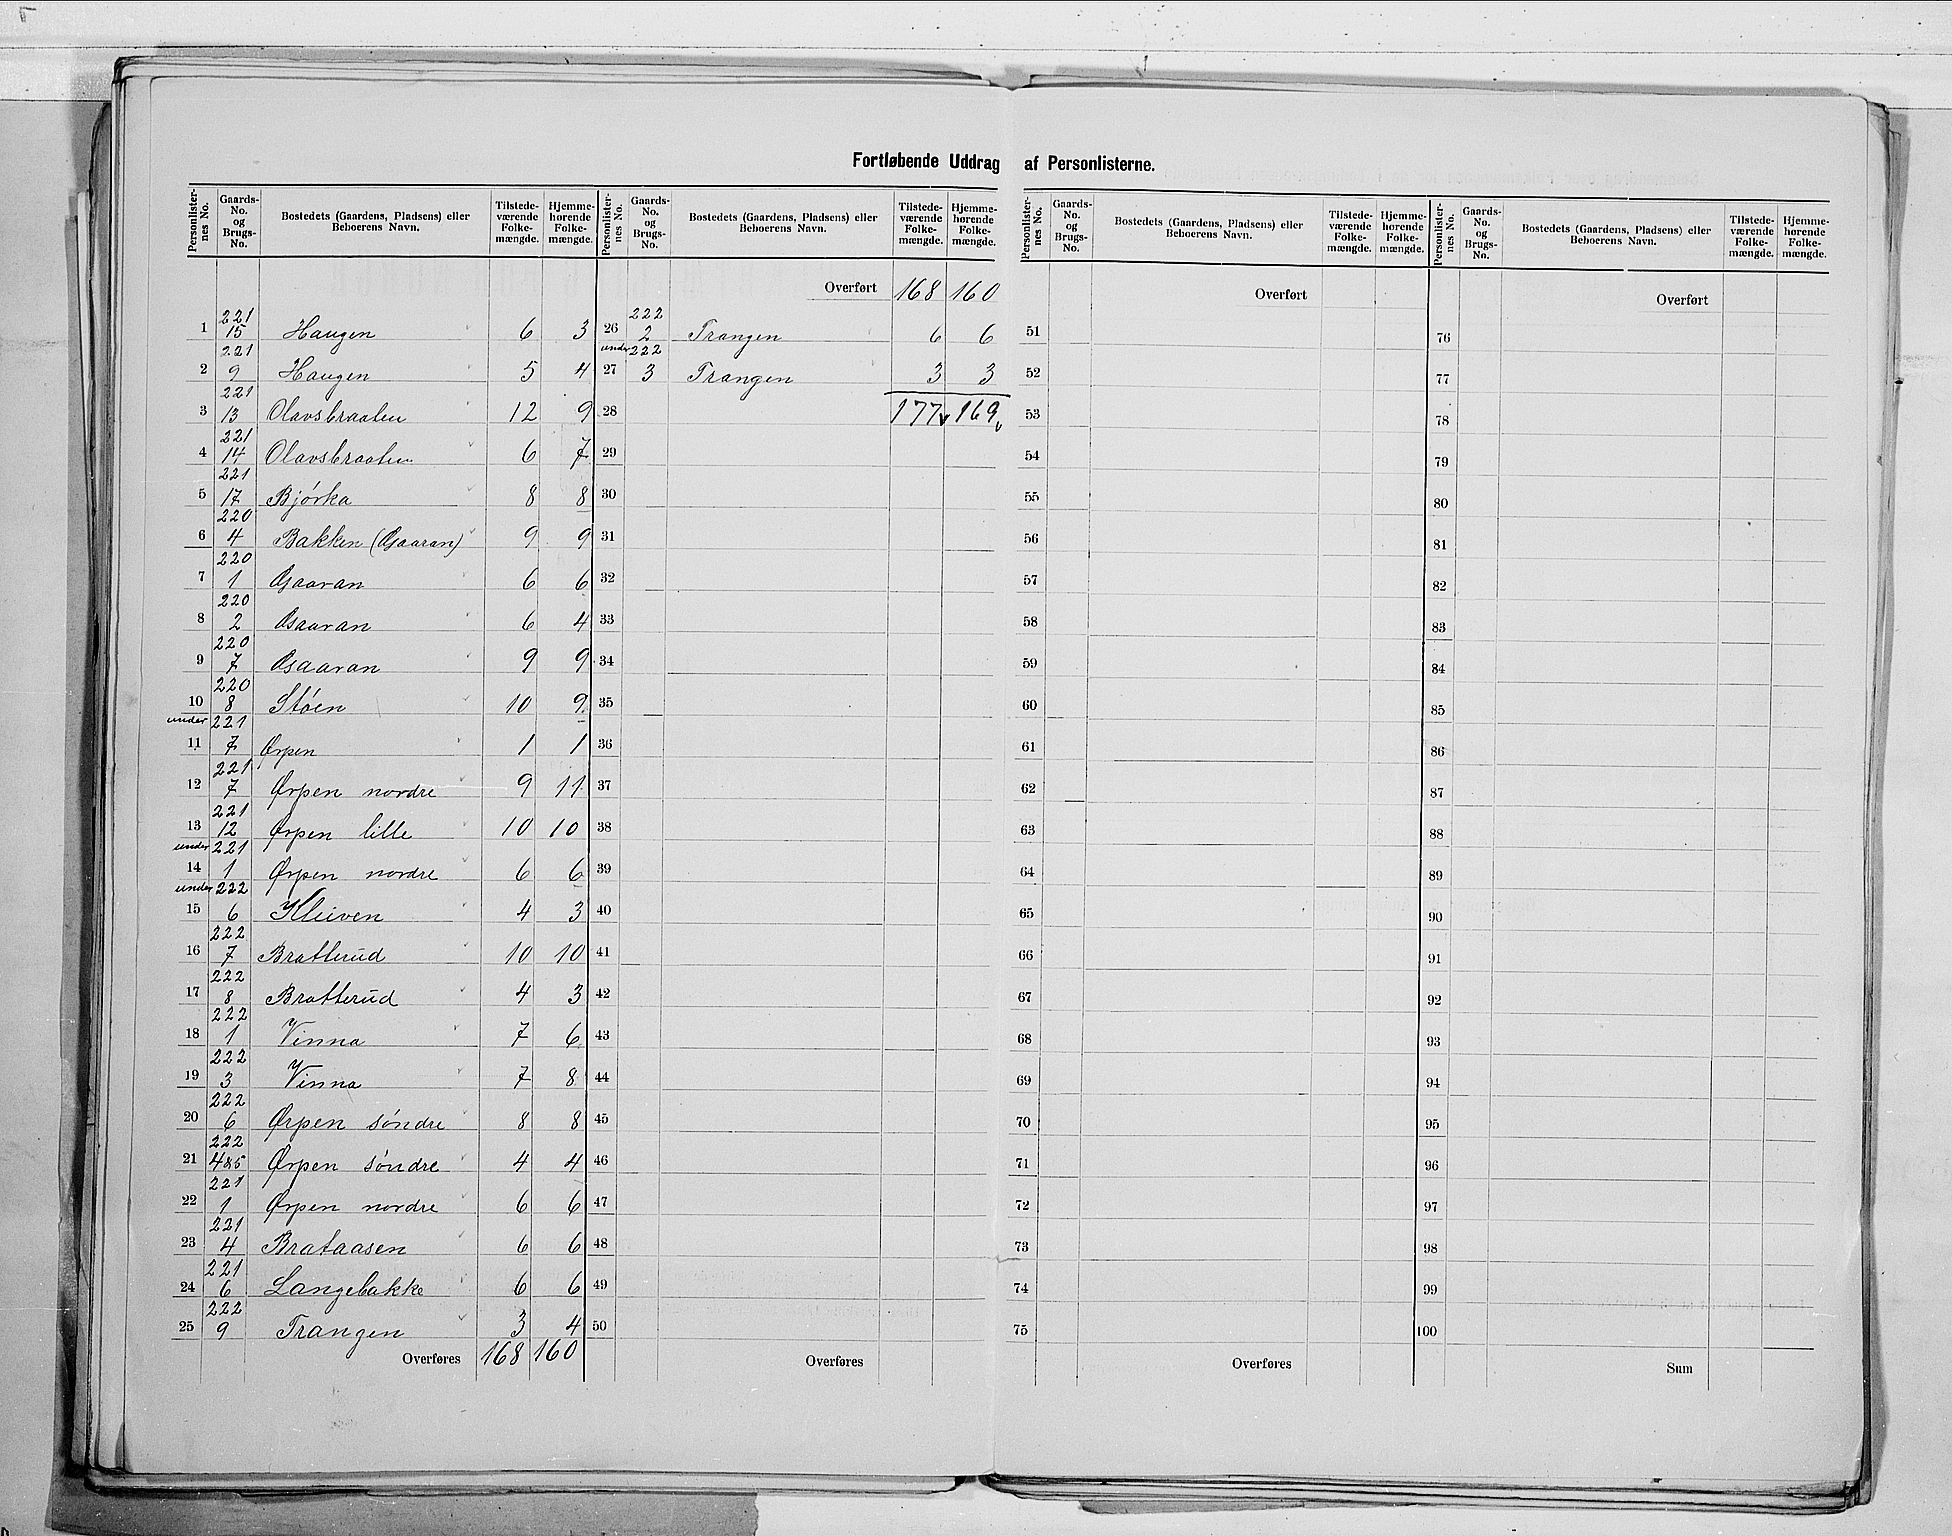 Fortløbende Uddrag af Personlisterne.
Personlister-nes No. Gaards-No. og Brugs-No. Bostedets (Gaardens, Pladsens) eller Beboerens Navn. Tilstede-værende Folke-mængde. Hjemme-hørende Folke-mængde. Personlister-nes No. Gaards-No. og Brugs-No. Bostedets (Gaardens, Pladsens) eller Beboerens Navn. Tilstede-værende Folke-mængde. Hjemme-hørende Folke-mængde. Personlister-nes No. Gaards-No. og Brugs-No. Bostedets (Gaardens, Pladsens) eller Beboerens Navn. Tilstede-værende Folke-mængde. Hjemme-hørende Folke-mængde. Personlister-nes No. Gaards-No. og Brugs-No. Bostedets (Gaardens, Pladsens) eller Beboerens Navn. Tilstede-værende Folke-mængde. Hjemme-hørende Folke-mængde.
Overført 168 160 Overført Overført
1 221 15 Haugen 6 3 26 222 2 Trangen 6 6 51 76
2 221 9 Haugen 5 4 27 under 222 3 Trangen 3 3 52 77
3 221 13 Olavsbraaten 12 9 28 177 169 53 78
4 221 14 Olavsbraaten 6 7 29 54 79
5 221 17 Bjørka 8 8 30 55 80
6 220 4 Bakken (Gsaaran) 9 9 31 56 81
7 220 1 Gsaaran 6 6 32 57 82
8 220 2 Gsaaran 6 4 33 58 83
9 220 7 Gsaaran 9 9 34 59 84
10 220 8 Støen 10 9 35 60 85
11 under 221 7 Ørpen 1 1 36 61 86
12 221 7 Ørpen nordre 9 11 37 62 87
13 221 12 Ørpen lille 10 10 38 63 88
14 under 221 1 Ørpen nordre 6 6 39 64 89
15 under 222 6 Kleiven 4 3 40 65 90
16 222 7 Bratterud 10 10 41 66 91
17 222 8 Bratterud 4 3 42 67 92
18 222 1 Vinna 7 6 43 68 93
19 222 3 Vinna 7 8 44 69 94
20 222 6 Ørpen søndre 8 8 45 70 95
21 222 4&5 Ørpen søndre 4 4 46 71 96
22 221 1 Ørpen nordre 6 6 47 72 97
23 221 4 Brataasen 6 6 48 73 98
24 221 6 Langebakke 6 6 49 74 99
25 222 9 Trangen 3 4 50 75 100
Overføres 168 160 Overføres Overføres Sum